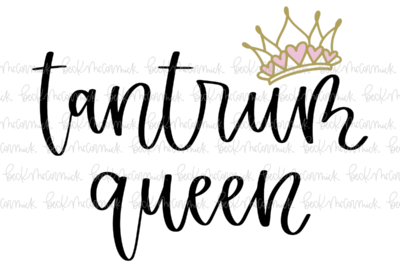 tantrum
queen